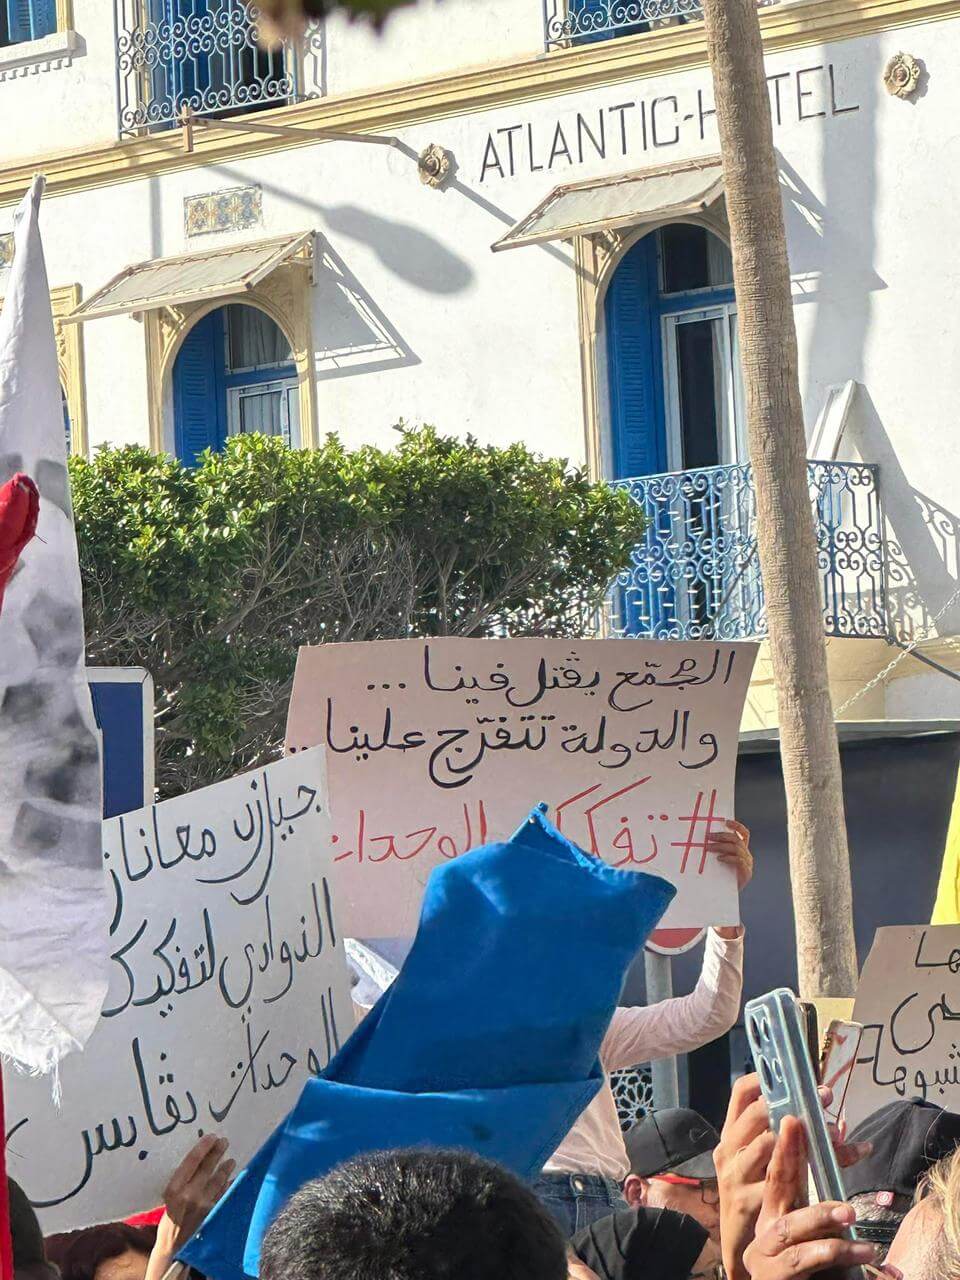 ATLANTIC-H TEL
المُجَمّع يڨتل فينا ...
والدولة تتفرّج علينا ..
#تفكيك الوحدات
جيران معاناة
النوادي لتفكيك
الوحدات بڨابس
ها
شبوها